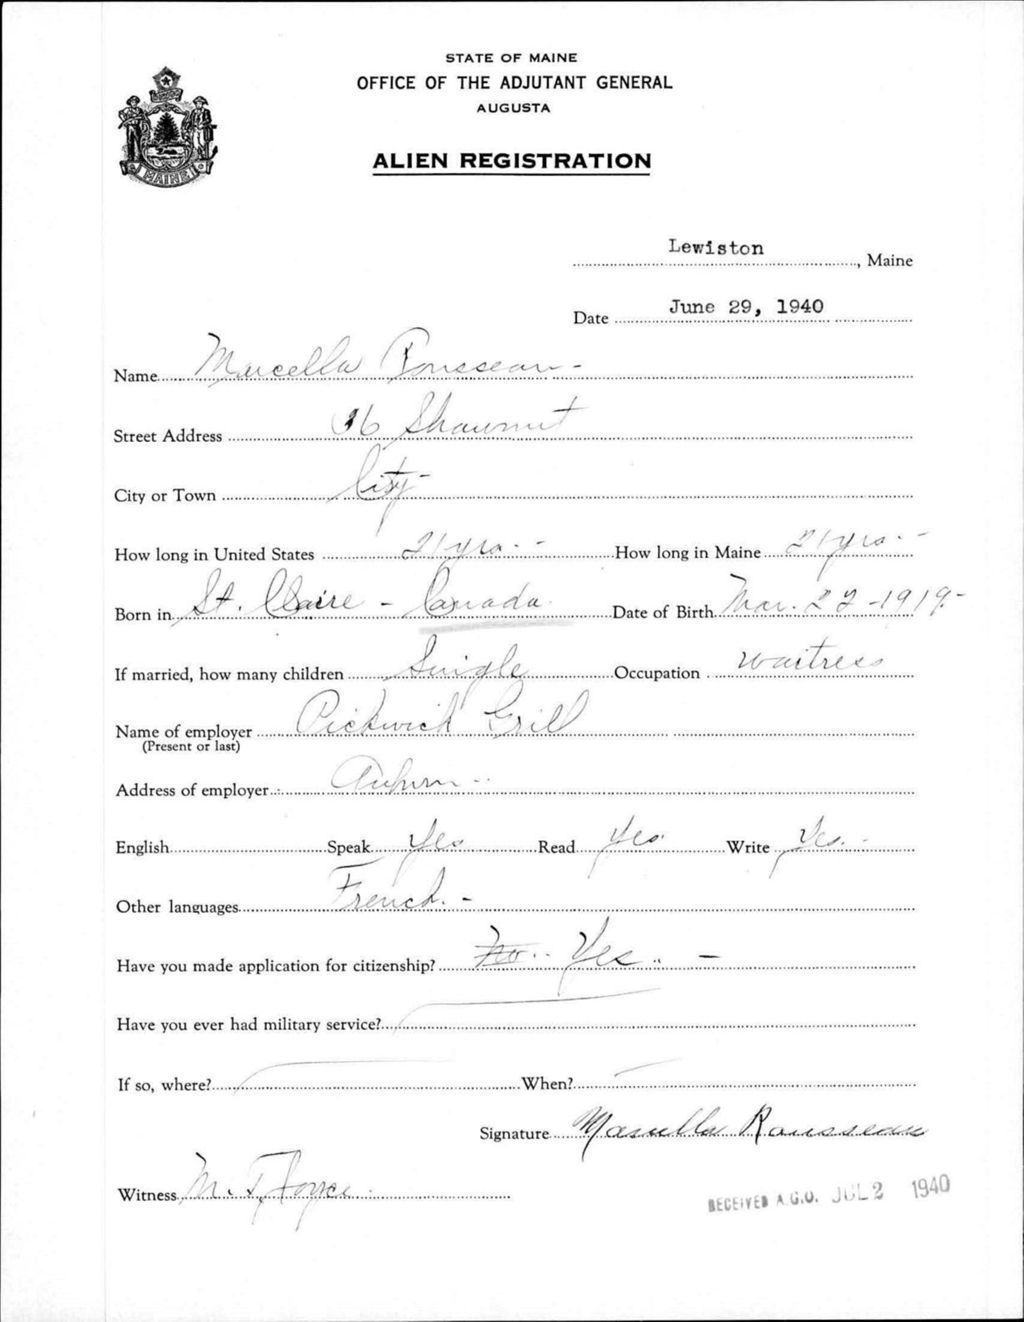 STATE OF MAINE
OFFICE OF THE ADJUTANT GENERAL
AUGUSTA
ALIEN REGISTRATION
MAINE
Lewiston, Maine
Date June 29, 1940
Name Marcella Rousseau -
Street Address 36 Shawmut
City or Town City -
How long in United States 21 yrs. - How long in Maine 21 yrs. -
Born in St. Claire - Canada Date of Birth Mar. 22 - 1919 -
If married, how many children Single Occupation Waitress
Name of employer Pickwick Grill
(Present or last)
Address of employer Auburn -
English Speak Yes Read Yes Write Yes. -
Other languages French. -
Have you made application for citizenship? No - Yes. -
Have you ever had military service?
If so, where? When?
Signature Marcella Rousseau
Witness M. T. Joyce
RECEIVED A.G.O. JUL 2 1940